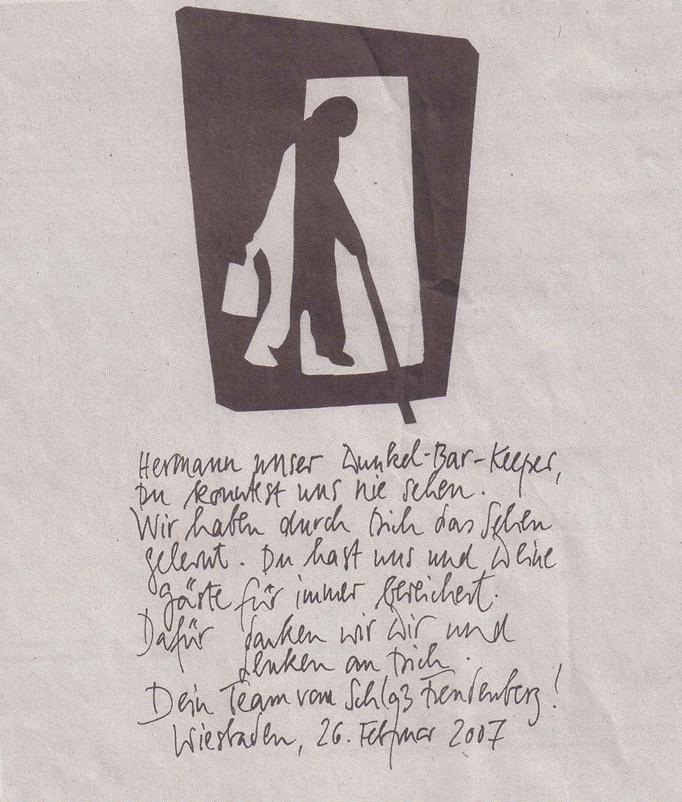 Hermann unser Dunkel-Bar-Keeper,
Du konntest uns nie sehen.
Wir haben durch Dich das Sehen
gelernt. Du hast uns und Deine
Gäste für immer bereichert.
Dafür danken wir Dir und
denken an Dich.
Dein Team vom Schloß Freudenberg!
Wiesbaden, 26. Februar 2007